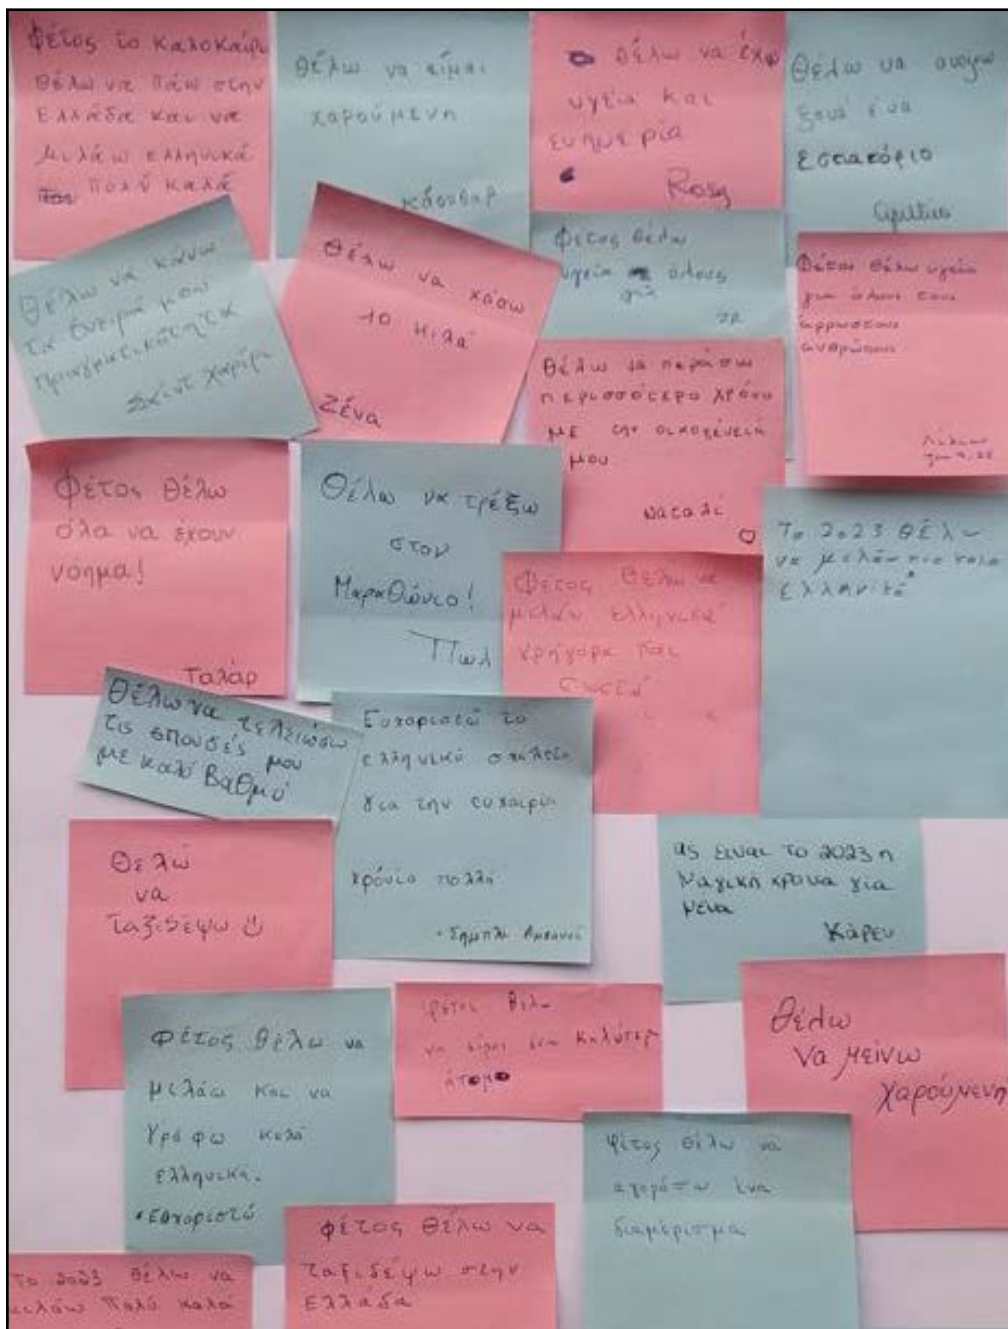 Φέτος το καλοκαίρι
θέλω να πάω στην
Ελλάδα και να
μιλάω ελληνικά
πολύ καλά
Θέλω να είμαι
χαρούμενη
Θέλω να έχω
υγεία και
ευημερία
Rosy
Θέλω να ανοίγω
ξανά ένα
εστιατόριο
Θέλω να κάνω
τα όνειρά μου
πραγματικότητα
Θέλω να χάσω
10 κιλά
Ζένα
Φέτος θέλω
υγεία για όλους
Φέτος θέλω υγεία
για όλους τους
αρρωστους
ανθρώπους
Θέλω να περάσω
περισσότερο χρόνο
με την οικογένειά
μου
Ναταλί
Φέτος θέλω
όλα να έχουν
νόημα!
Ταλάρ
Θέλω να τρέξω
στον
Μαραθώνιο!
Πωλ
Φέτος θέλω να
μιλάω ελληνικά
γρήγορα και
σωστά
Το 2023 θέλω
να μιλάω πιο καλα
ελληνικά
Θέλω να τελειώσω
τις σπουδές μου
με καλό βαθμό
Ευχαριστώ το
ελληνικό σχολείο
για την ευκαιρία
χρόνια πολλά
Θελώ
να
ταξιδέψω
ας ειναι το 2023 η
μαγικη χρονια για
μενα
Κάρεν
Φέτος θέλω να
μιλάω και να
γράφω καλά
ελληνικά.
Φέτος θέλω
να είμαι ένα καλύτερο
άτομο
Θέλω
να μείνω
χαρούμενη
Φέτος θέλω να
αγοράσω ένα
διαμέρισμα
Φέτος θέλω να
ταξιδέψω στην
Ελλάδα
Το 2023 θέλω να
μιλάω πολύ καλά